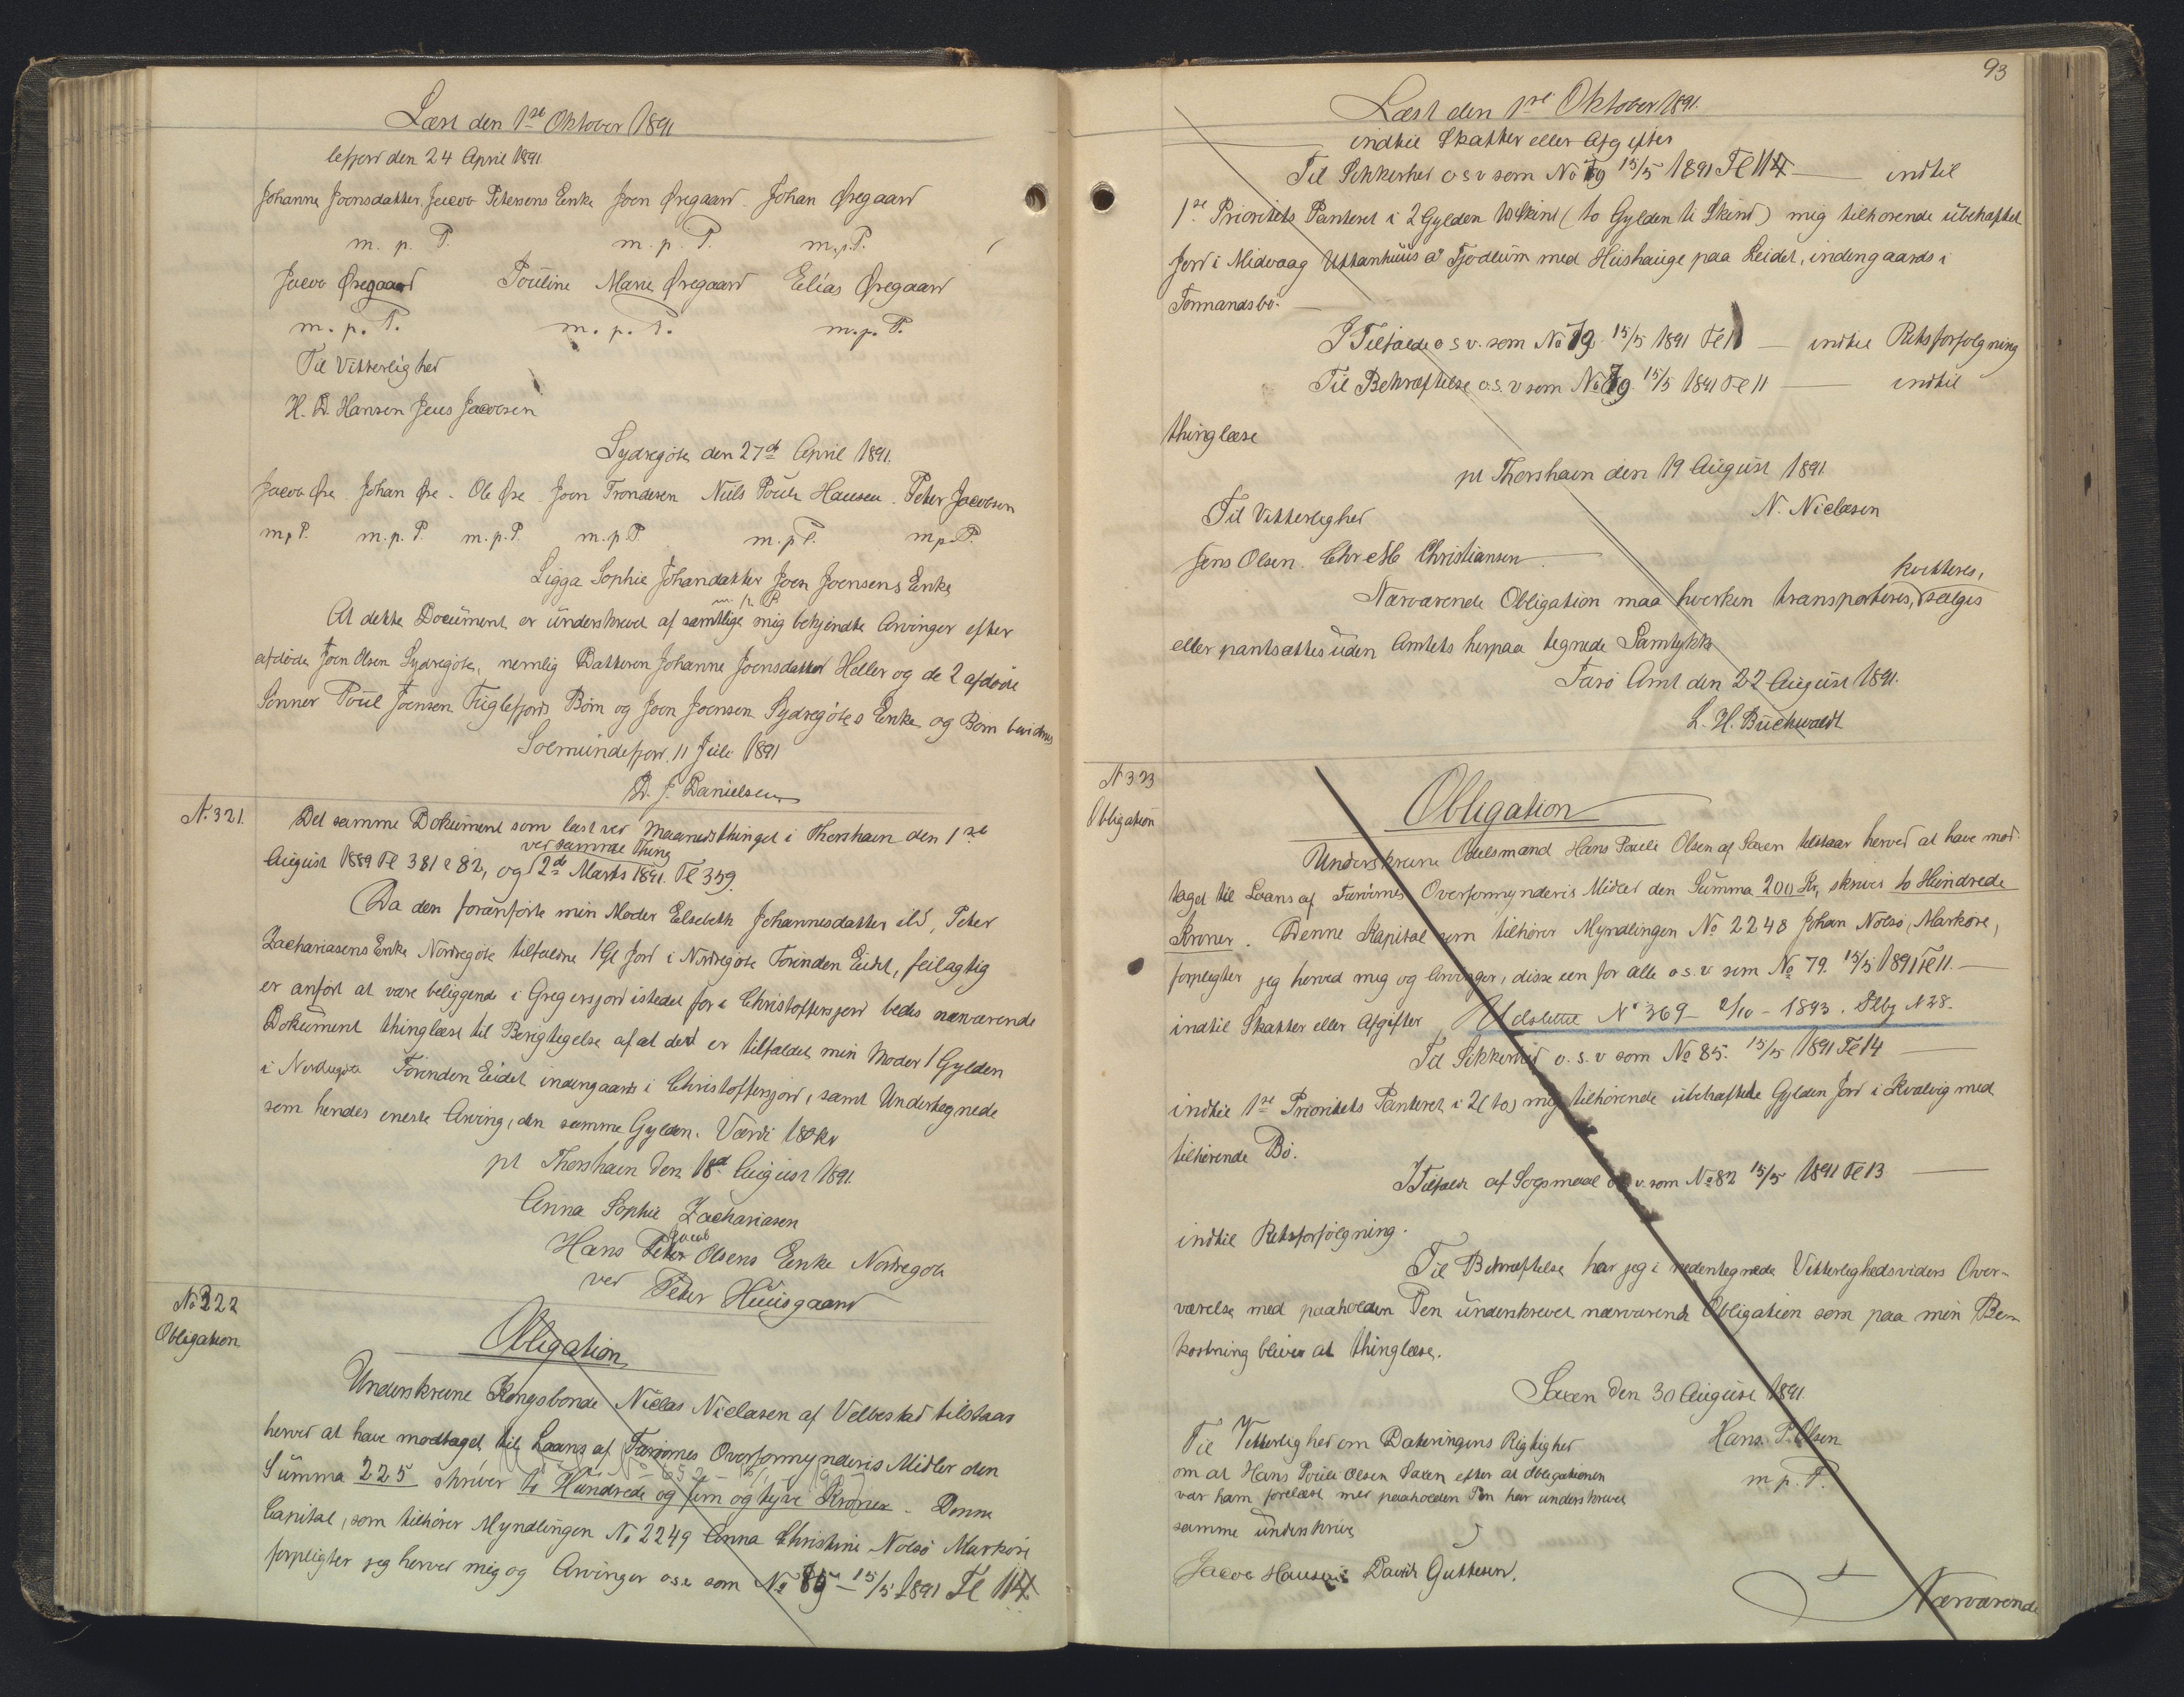 Læst den 1ste Oktober 1891
lefjord den 24 April 1891.
Johanne Joensdatter, Jacob Petersens Enke Joen Øregaard Johan Øregaard
m. p. P. m. p. P. m. p. P.
Jacob Øregaard Pouline Marie Øregaard Elias Øregaard
m. p. P. m. p. P. m. p. P.
Til Vitterlighed
H. D. Hansen Jens Jacobsen
Sydregöte den 27de April 1891.
Jacob Øre Johan Øre Ole Øre Joen Trondesen Niels Poule Hansen Peter Jacobsen
m. p. P. m. p. P. m. p. P. m. p. P. m. p. P. m. p. P.
Ligga Sophie Johandatter Joen Joensens Enke
m. p. P.
At dette Document er underskrevet af samtlige mig bekjendte Arvinger efter
afdöde Joen Olsen Sydregöte, nemlig Datteren Johanne Joensdatter Heller og de 2 afdöde
Sönner Poul Joensen Fuglefjords Börn og Joen Joensen Sydregötes Enke og Börn bevidnes
Solmundefjord, 11 Juli 1891
D. J. Danielsen
N. 321. Det samme Dokument som læst ved Maanedsthinget i Thorshavn den 1ste
August 1889 Fl 381 & 82, og ved samme Thing 2de Marts 1891. Fl 359.
Da den foranförte min Moder Elsebeth Johannesdatter ild, Peter
Zachariasens Enke Nordregöte tilfaldne 1 Gl Jord i Nordregöte Forinden Eidet, feilagtig
er anfört at være beliggende i Gregersjord istedet for i Christoffersjord bedes nærværende
Dokument thinglæst til Berigtigelse af at der er tilfaldet min Moder 1 Gylden
i Nordregöte Forinden Eidet indengaards i Christoffersjord, samt Undertegnede
som hendes eneste Arving, den samme Gylden. Værdi 180 Kr
pt Thorshavn den 18de August 1891.
Anna Sophie Zachariasen
Hans Jacob Olsens Enke Nordregöte
ved Peter Huusgaard
No 322
Obligation
Obligation
Underskrevne Kongsbonde Niclas Niclasen af Velbestad tilstaar
herved at have modtaget til Laans af Færöernes Overformynderis Midler den
Summa 225 skriver to Hundrede og fem og tyve Kroner. Denne
Capital, som tilhörer Myndlingen No 2249 Anna Christine Nolsö Marköre
forpligter jeg herved mig og Arvinger o s v som No 85 15/5 1891 Fl 14
93
Læst den 1ste Oktober 1891.
indtil Skatter eller Afgifter
Til Sikkerhed o s v som No 79 15/5 1891 Fl 11 indtil
1ste Prioritets Panteret i 2 Gylden 10 Skind (to Gylden ti Skind) mig tilhörende ubehæftet
Jord i Midvaag Uttanhuus a Tjodlum med Huushauge paa Leidet, indengaards i
Formandsbö.
I Tilfælde o s v. som No 79 15/5 1891 Fl 11 indtil Retsforfolgning
Til Bekræftelse o. s. v som No 79 15/5 1891 Fl 11 indtil
thinglæse
pt Thorshavn den 19 August 1891.
Til Vitterlighed N. Niclasen
Jens Olsen. Chr M Christiansen
Nærværende Obligation maa hverken transporteres, kvitteres, sælges
eller pantsættes uden Amtets herpaa tegnede Samtykke
Færö Amt den 22 August 1891.
L. H. Buchwaldt
N 323
Obligation
Obligation
Underskrevne Odelsmand Hans Poule Olsen af Saxen tilstaar herved at have mod-
taget til Laans af Færöernes Overformynderis Midler den Summa 200 Kr, skriver to Hundrede
Kroner. Denne Kapital som tilhörer Myndlingen No 2248 Johan Nolsö, Marköre,
forpligter jeg herved mig og Arvinger, disse een for alle o. s. v som No 79. 15/5 1891 Fl 11.
indtil Skatter eller Afgifter Udslettet No 369 2/10 - 1893. Dlbg N 28.
Til Sikkerhed o. s. v som No 85. 15/5 1891 Fl 14
indtil 1ste Prioritets Panteret i 2 (to) mig tilhörende ubehæftede Gylden Jord i Kvalvig med
tilhörende Bö.
I Tilfælde af Sogsmaal o s v. som No 82 15/5 1891 Fl 13
indtil Retsforfölgning.
Til Bekræftelse har jeg i nedentegnede Vitterlighedsviders Over-
værelse med paaholden Pen underskrevet nærværende Obligation som paa min Be-
kostning bliver at thinglæse.
Saxen den 30 August 1891.
Til Vitterlighed om Dateringens Rigtighed Hans P. Olsen
om at Hans Poule Olsen Saxen efter at Obligationen m. p. P.
var ham forelæst med paaholden Pen har underskrevet
samme underskrive
Jacob Hansen David Guttesen.
Nærværende